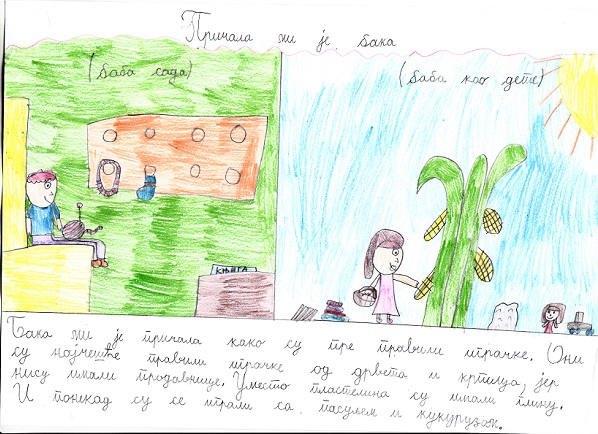 Причала ми је бака
(баба сада)
(баба као дете)
КЊИГА
Бака ми је причала како су пре правили играчке. Они
су најчешће правили играчке од дрвета и крпица, јер
нису имали продавнице. Уместо пластелина су имали глину.
И понекад су се играли са пасуљем и кукурузом.